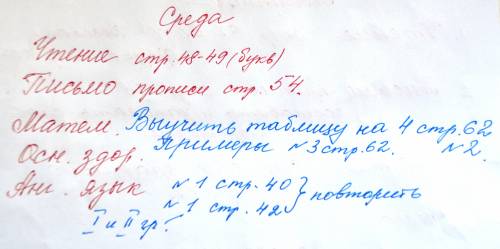 Среда
Чтение стр. 48-49 (букв)
Письмо прописи стр. 54.
Матем. Выучить таблицу на 4 стр. 62
Осн. здор. Примеры №3 стр. 62. №2.
Анг. язык №1 стр. 40 } повторить
№1 стр. 42
I и II гр.